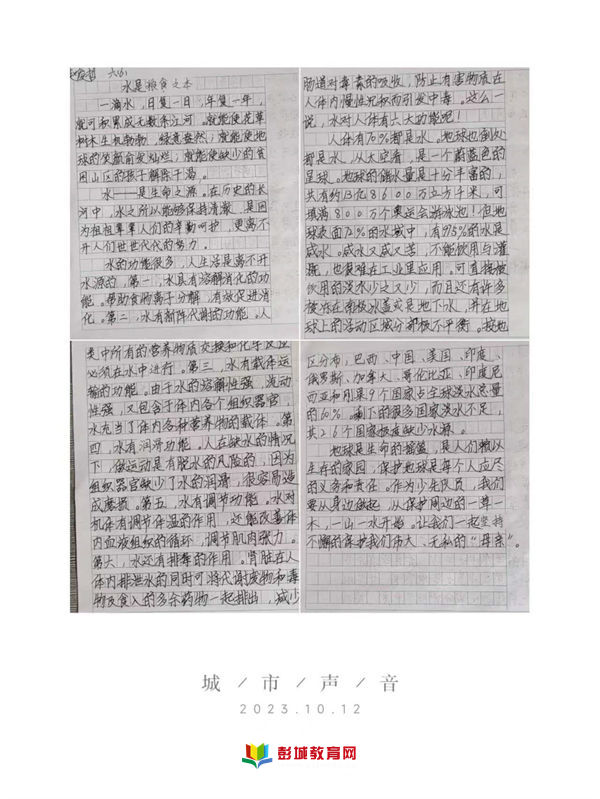 六(6)
水是粮食之本
一滴水，日复一日，年复一年，
就可积累成无数条江河。就能使花草
树木生机勃勃，绿意盎然；就能使地
球的笑颜愈发灿烂；就能使缺少的贫
困山区的孩子解除干渴。
水——是生命之源。在历史的长
河中，水之所以能够保持清澈，是因
为祖祖辈辈人们的辛勤呵护，更离不
开人们世世代代的努力。
水的功能很多，人生活是离不开
水源的，第一，水具有溶解消化的功
能。帮助食物离子分解，有效促进消
化。第二，水有新陈代谢的功能。人
类中所有的营养物质交换和化学反应
必须在水中进行。第三，水有载体运
输的功能。由于水的溶解性强，流动
性强，又包含于体内各个组织器官，
水充当了体内各种营养物的载体。第
四，水有润滑功能。人在缺水的情况
下，做运动是有脱水的风险的，因为
组织器官缺少了水的润滑，很容易造
成磨损。第五，水有调节功能。水对
机体有调节体温的作用，还能改善体
内血液组织的循环，调节肌肉张力。
第六，水还有排毒的作用。肾脏在人
体内排泄水的同时可将代谢废物和毒
物及食入的多余药物一起排出，减少
肠道对毒素的吸收，防止有害物质在
人体内慢性沉积而引发中毒。这么一
说，水对人体有六大功能呢！
人体有70%都是水。地球也到处
都是水，从太空看，是一个蔚蓝色的
星球。地球的储水量是十分丰富的，
共有约13亿8600万立方千米，可
填满800万个奥运会游泳池！但地
球表面72%的水域中，有97.5%的水是
咸水。咸水又咸又苦，不能饮用与灌
溉，也很难在工业里应用。可直接被
饮用的淡水少之又少，而且还有许多
被冻在南极冰盖或是地下水，并在地
球上的活动区域分部极不平衡。按地
区分布，巴西、中国、美国、印度、
俄罗斯、加拿大、哥伦比亚、印度尼
西亚和刚果9个国家占全球淡水总量
的60%。剩下的很多国家淡水不足，
其26个国家极度缺少水源。
地球是生命的摇篮，是人们赖以
生存的家园，保护地球是每个人应尽
的义务和责任。作为少年队员，我们
要从身边做起，从保护周边的一草一
木，一山一水开始。让我们一起坚持
不懈的保护我们伟大、无私的“母亲”。
城/市/声/音
2023.10.12
彭城教育网